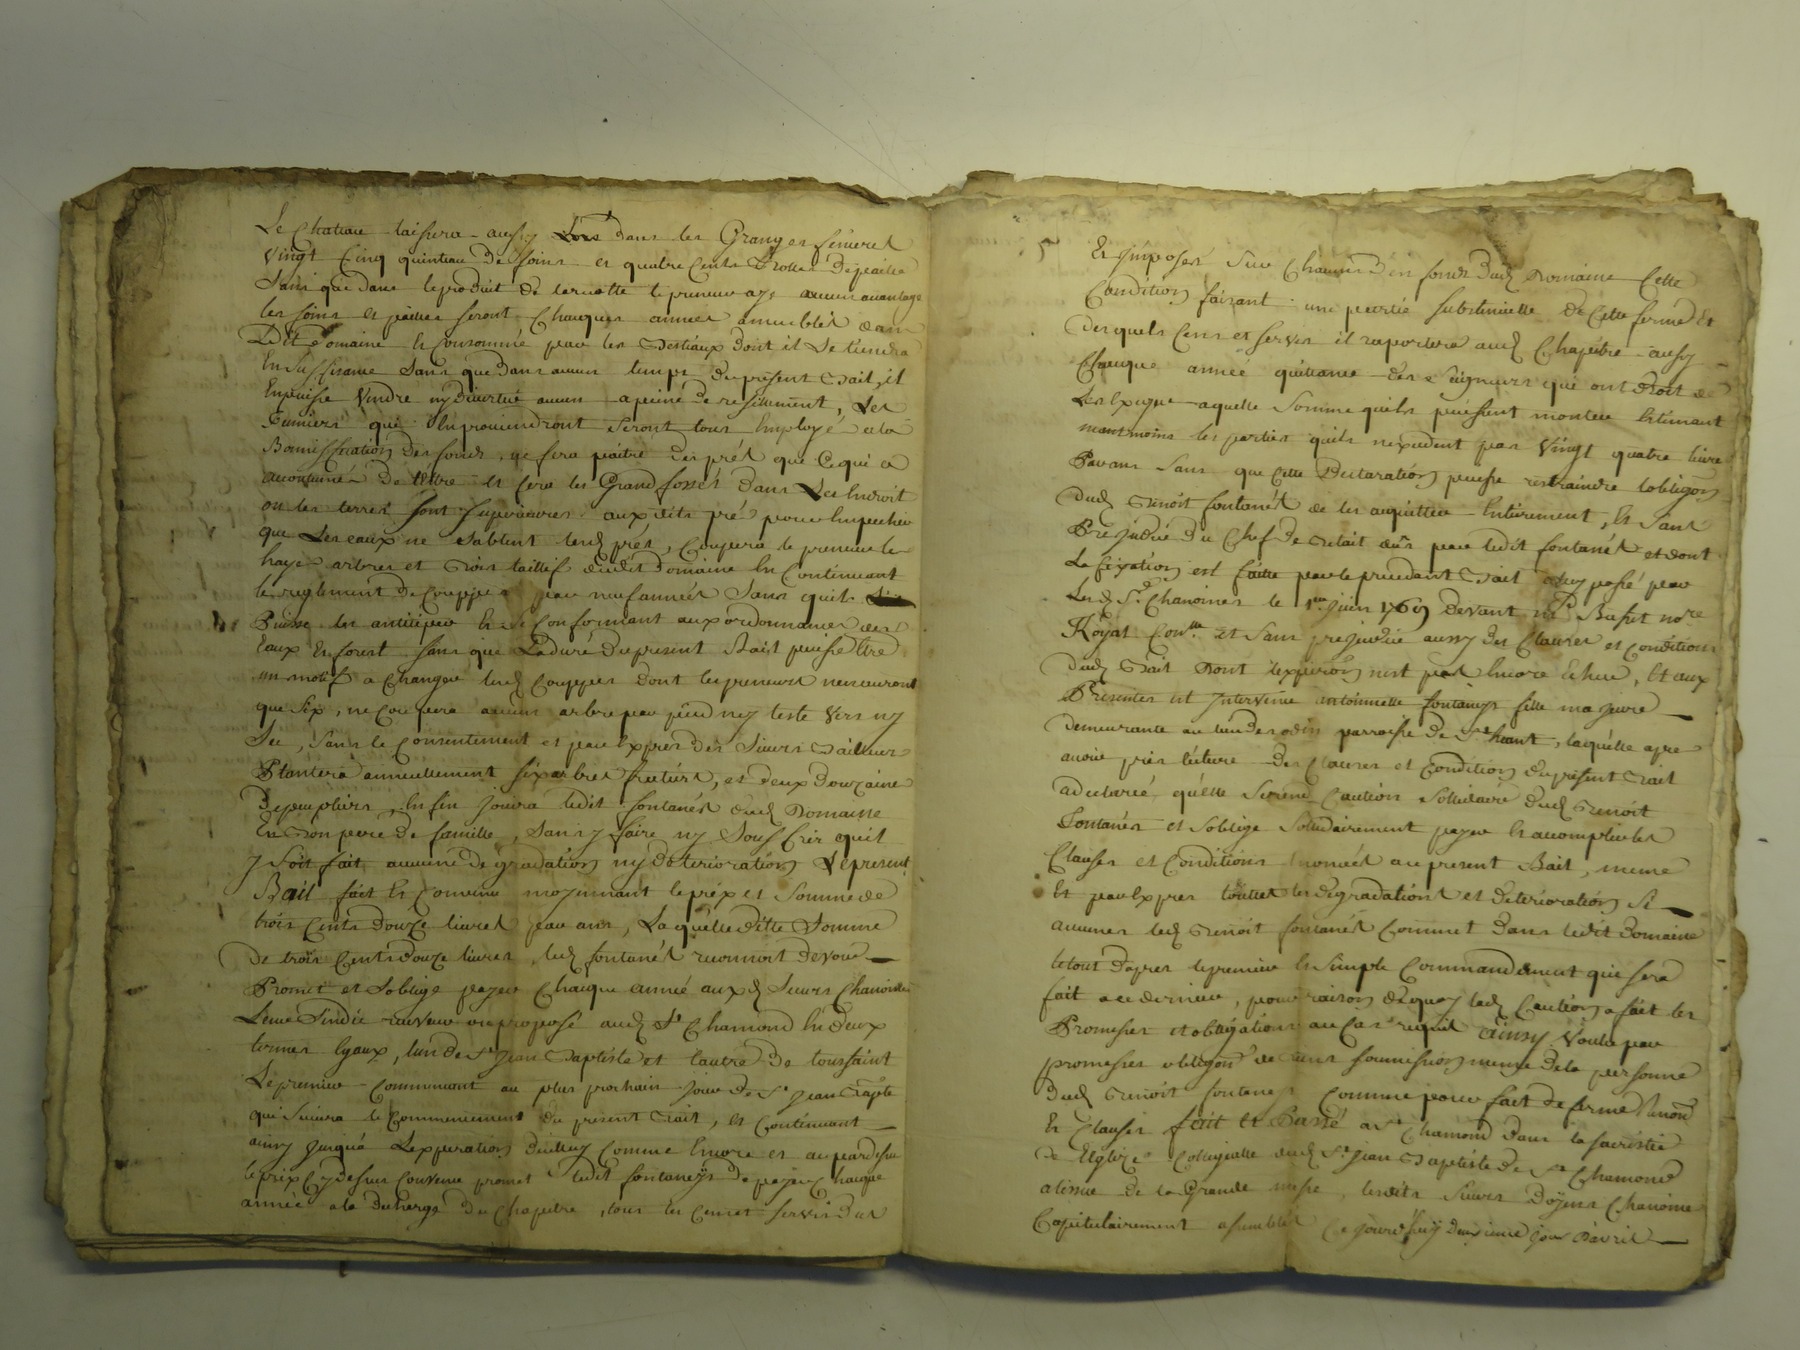 Le Chateau laissera aussy Lors dans les Granges fenieres
vingt Cinq quinteau de foins et quatre Cents Trosses de paille
Sans que dans le produit de la recolte le preneur aye aucun avantage
les foins et pailles seront Chaques année amublés dans
Dit Domaine et Consommé par les Bestiaux dont il se tiendra
En Suffisance Sans que dans aucun temps du present Bail, il
En puisse Vendre ny divertir aucun apeine de resiliment, Les
fumiers qui En proviendront Seront tous Employé a la
Bonniffication des fonds, ne fera paitre des prés que Ce qui a
accoutumé De l'être et fera les Grand fossés dans Les Endroit
ou les terres Sont Superieures aux dits pré pour Empecher
que Les eaux ne Sablent lesd prés, Coupera le preneur les
haye arbres et Bois taillif dudit Domaine En Continuant
le reglement de Couppe par neuf années Sans quil
Puisse les anticiper Et Se Conformant aux ordonnances des
Eaux Et forest Sans que La duré du present Bail puisse Etre
un motif a Changer lesd Couppes dont les preneurs n'en auront
que Six, ne Coupera aucun arbre par pied ny teste Vers ny
Sec, Sans le Consentement et par Expres des Sieurs Bailleurs
Plantera annuellement Six arbres fruitiers, et deux Douzaine
De peupliers, En fin Jouira ledit fontanés dud Domaine
En Bon pere de famille, Sans y faire ny Souffrir quil
y Soit fait aucune degradation ny deterioration Le present
Bail fait Et Convenu moyennant le prix et Somme de
trois Cents Douze livres par ans, La quelle ditte Somme
De trois Cents Douze livres, led fontanés reconnoit devoir
Promet et Soblige payer Chaque année aux d Sieurs Chanoines
Leur Sindic receveur ou proposé aud St Chamond En deux
termes Egaux, lun de St Jean Baptiste et lautre de toussaint
Le premier Commencant au plus prochain Jour de St Jean Bapte
qui Suivra le Commencement du present Bail, et Continuant
ainsy Jusqua Lexpiration dicelluy Comme Encore et au par dessu
le prix Cy dessus Convenu promet ledit fontaneys de payer Chaque
année a la decharge du Chapitre, tous les Cences Servis Dus
5 Et Imposés Sur Chacun des fonds dud Domaine Cette
Condition faisant une partie Substencielle de Cette ferme Et
des quels Cens et Servis il raportera aud Chapitre aussy
Chaque année quittance des Seigneurs qui ont droit de
Les Exiger aquelle Somme quils puissent monter Estimant
neantmoins les parties quils nexcedent pas Vingt quatre livre
Par ans Sans que Cette Declaration puisse restraindre lobligōn
dud Benoit fontanés de les acquitter Entierement, Et Sans
Prejudice du Chef de Bétail dus par ledit fontanés et dont
La fixation est faitte par le precedant Bail a luy passé par
Lesd Sr Chanoines le 1er Juin 1769 devant me Basset nore
Royal Conller et Sans prejudice aussy des Clauses et Conditions
dud Bail dont lexpirōn nest pas Encore Echue, Et aux
Presentes est Intervenue antoinette fontaneys fille majeure
demeurante au lieu de parroisse de St heant, laquelle apre
avoir pris lecture des Clauses et Condition du present Bail
a declaré quelle Se rend Caution Sollidaire dud Benoit
Fontanés et Soblige Sollidairement payer Et accomplir les
Clauses et Conditions Enoncés au present Bail, meme
Et par Expres toutes les degradations et deteriorations Si
aucunes led Benoit fontanés Commet dans ledit Domaine
le tout dapres le premier Et Simple Commandement qui Sera
fait a ce dernier, pour raison de quoy lad Caution a fait les
Promesses et obligations au Cas requis ainsy Voulu par
promesses obligōn de biens soumission meme de la personne
dud Benoit fontaneys Comme pour fait de ferme Renon
Et Clauses fait Et Passé a St Chamond dans la sacristie
de Eglize Collegialle dud St Jean Baptiste de St Chamond
a lissue de la Grande messe, lesdits Sieurs Doyens Chanoine
Capitulairement assemblés Ce Jourdhuy Deuxieme Jour Davril